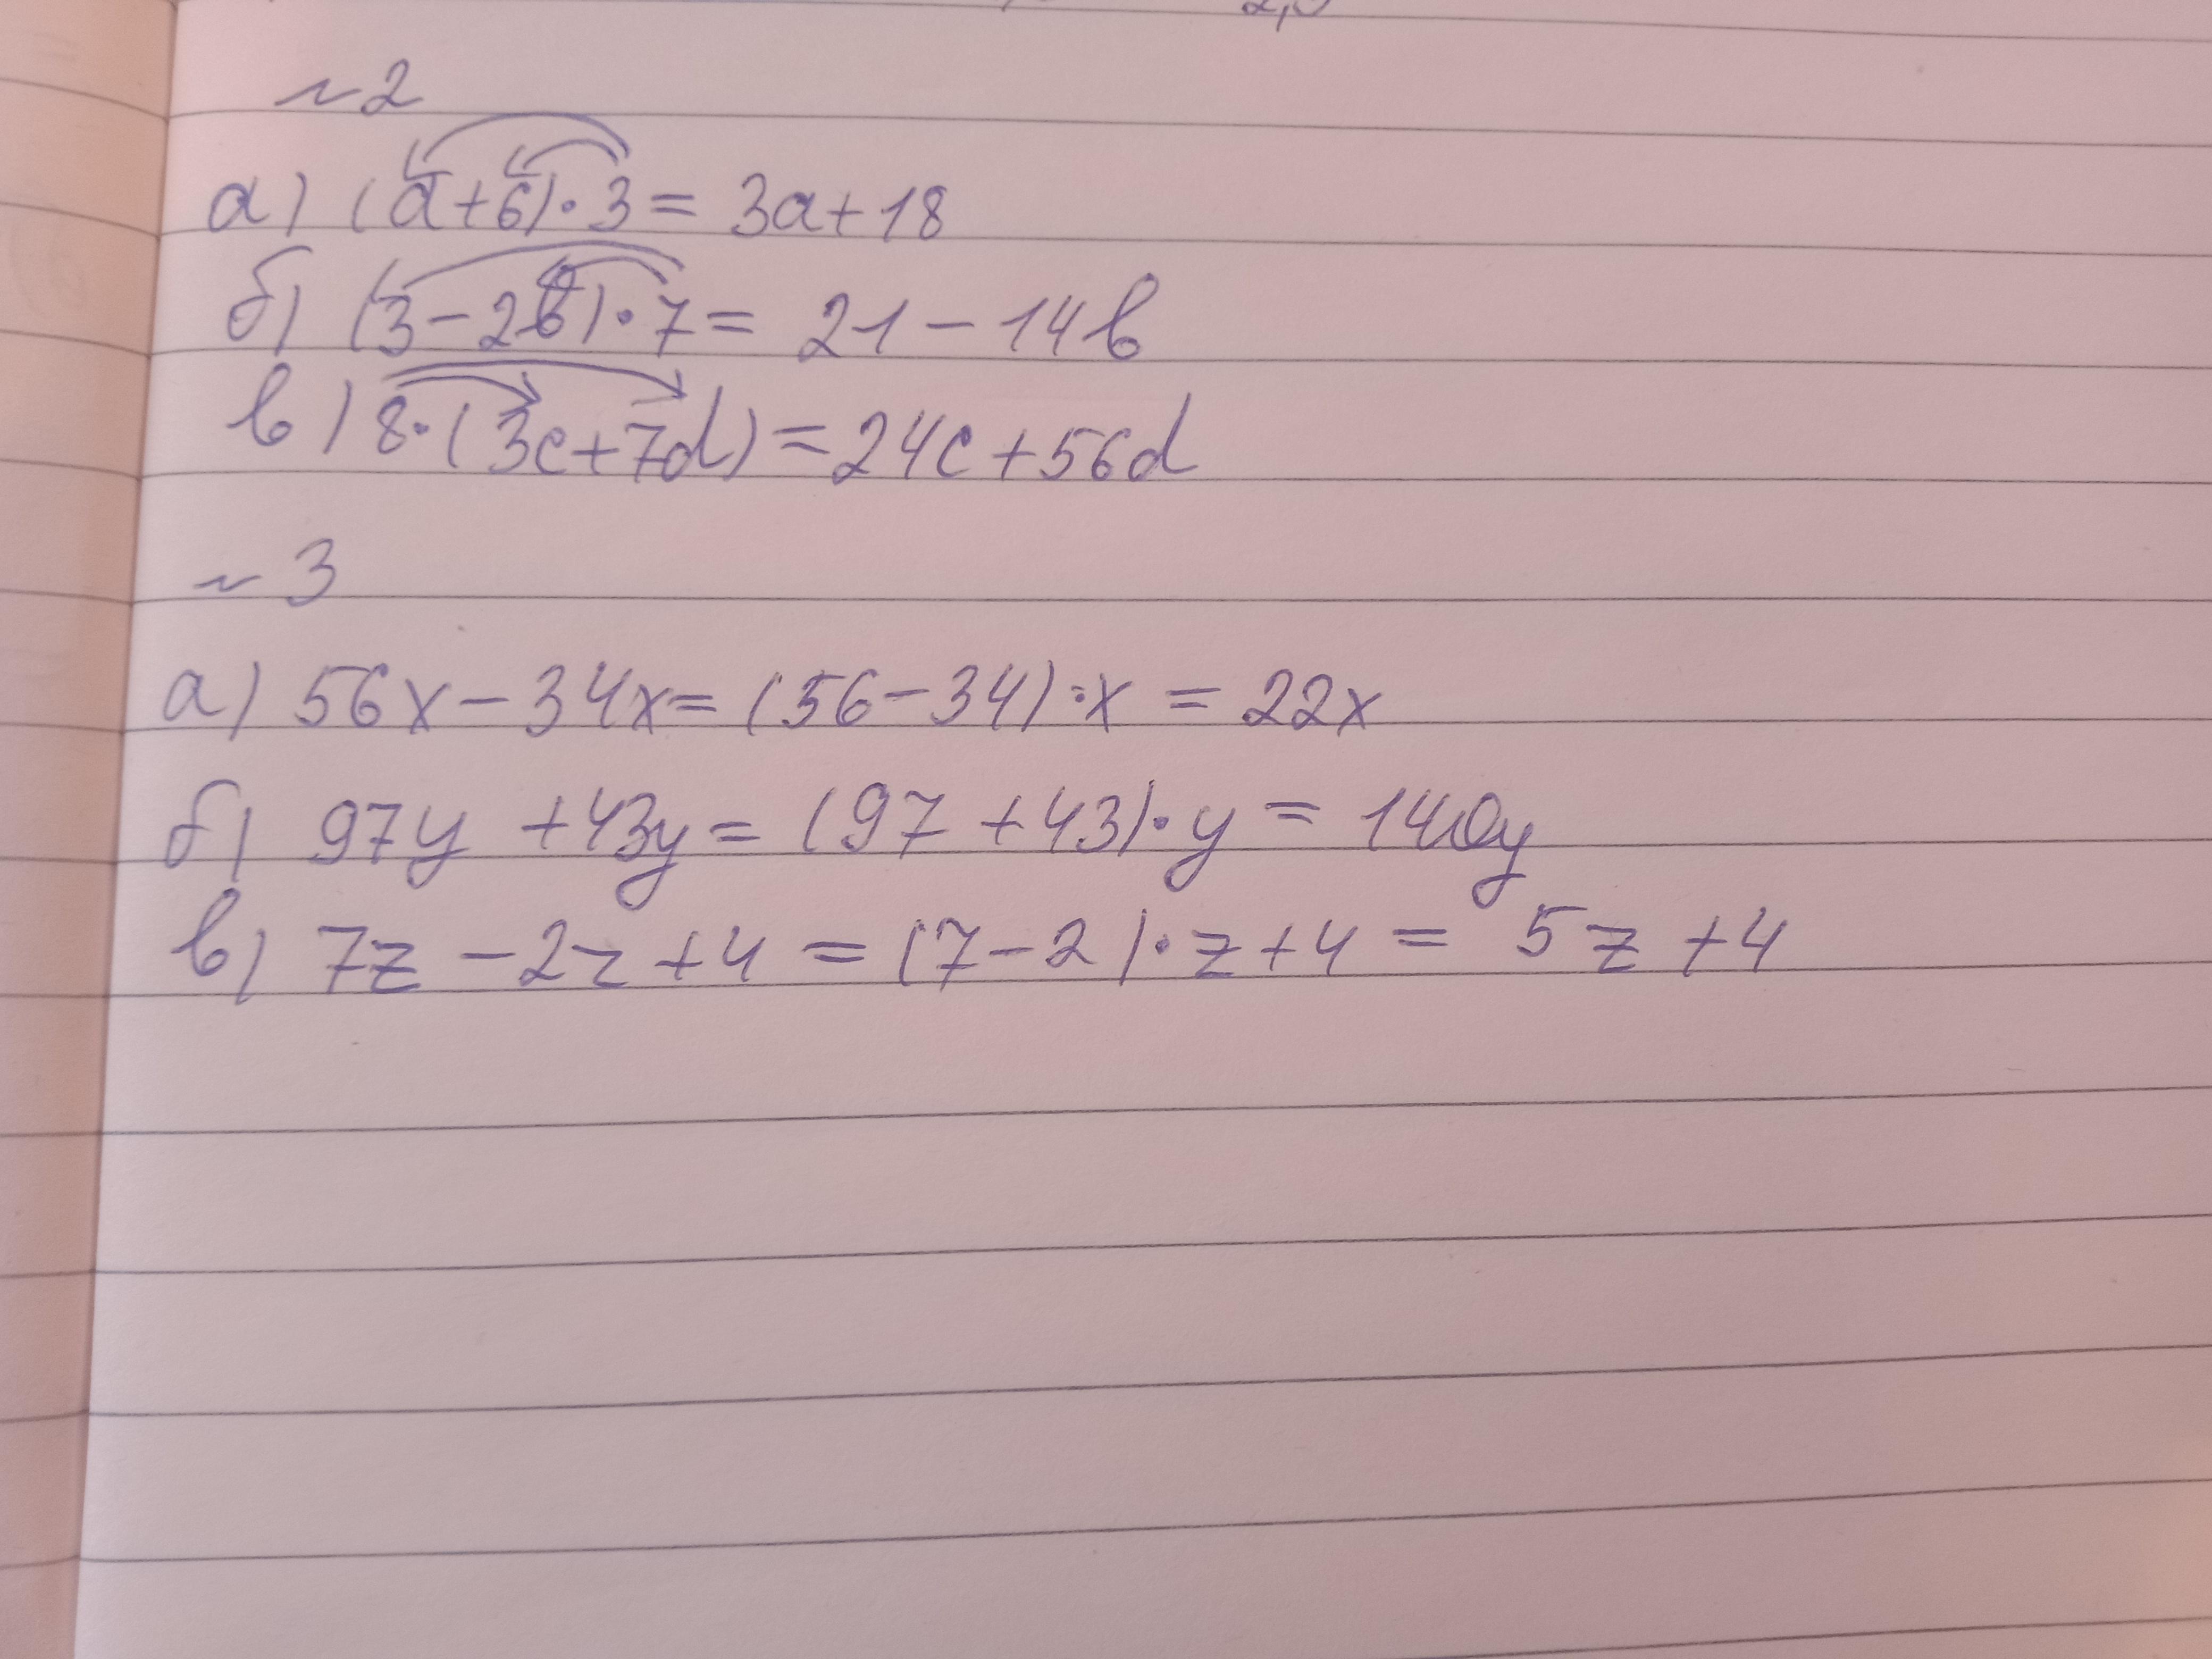 №2
а) (a+6)·3= 3a+18
б) (3-2b)·7= 21-14b
в) 8·(3c+7d)=24c+56d
№3
а) 56x-34x= (56-34)·x = 22x
б) 97y +43y= (97 +43)·y = 140y
в) 7z -2z +4 = (7-2)·z+4 = 5z +4